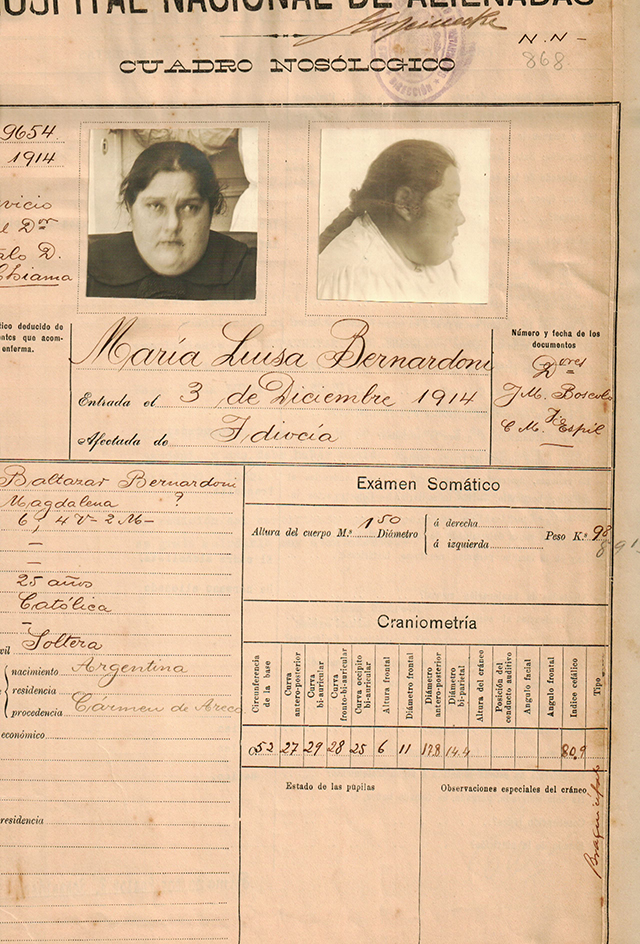 HOSPITAL NACIONAL DE ALIENADAS
CUADRO NOSÓLOGICO
N.N -
868.
9654.
1914
vicio
l Dor
alo D.
Chiama
tico deducido de
ntos que acom-
enferma.
María Luisa Bernardoni
Entrada el 3 de Diciembre 1914
Afectada de Idiocía
Número y fecha de los
documentos
Dores
J.M. Boscolo
C M. Espil
Baltazar Bernardoni
Magdalena ?
6, 4 V- 2 M-
-
-
25 años
Católica
-
vil Soltera
nacimiento Argentina
residencia
procedencia Cármen de Areco
económico
residencia
Exámen Somático
Altura del cuerpo M.s 1 50 Diámetro
á derecha
á izquierda
Peso K.s 98
Craniometría
Circunferencia de la base
Curva antero-posterior
Curva bi-auricular
Curva fronto-bi-auricular
Curva occipito bi-auricular
Altura frontal
Diámetro frontal
Diámetro antero-posterior
Diámetro bi-parietal
Altura del cráneo
Posición del conducto auditivo
Angulo facial
Angulo frontal
Indice cefálico
Tipo
52 27 29 28 25 6 11 178 14.4 80.9
Estado de las pupilas
Observaciones especiales del cráneo